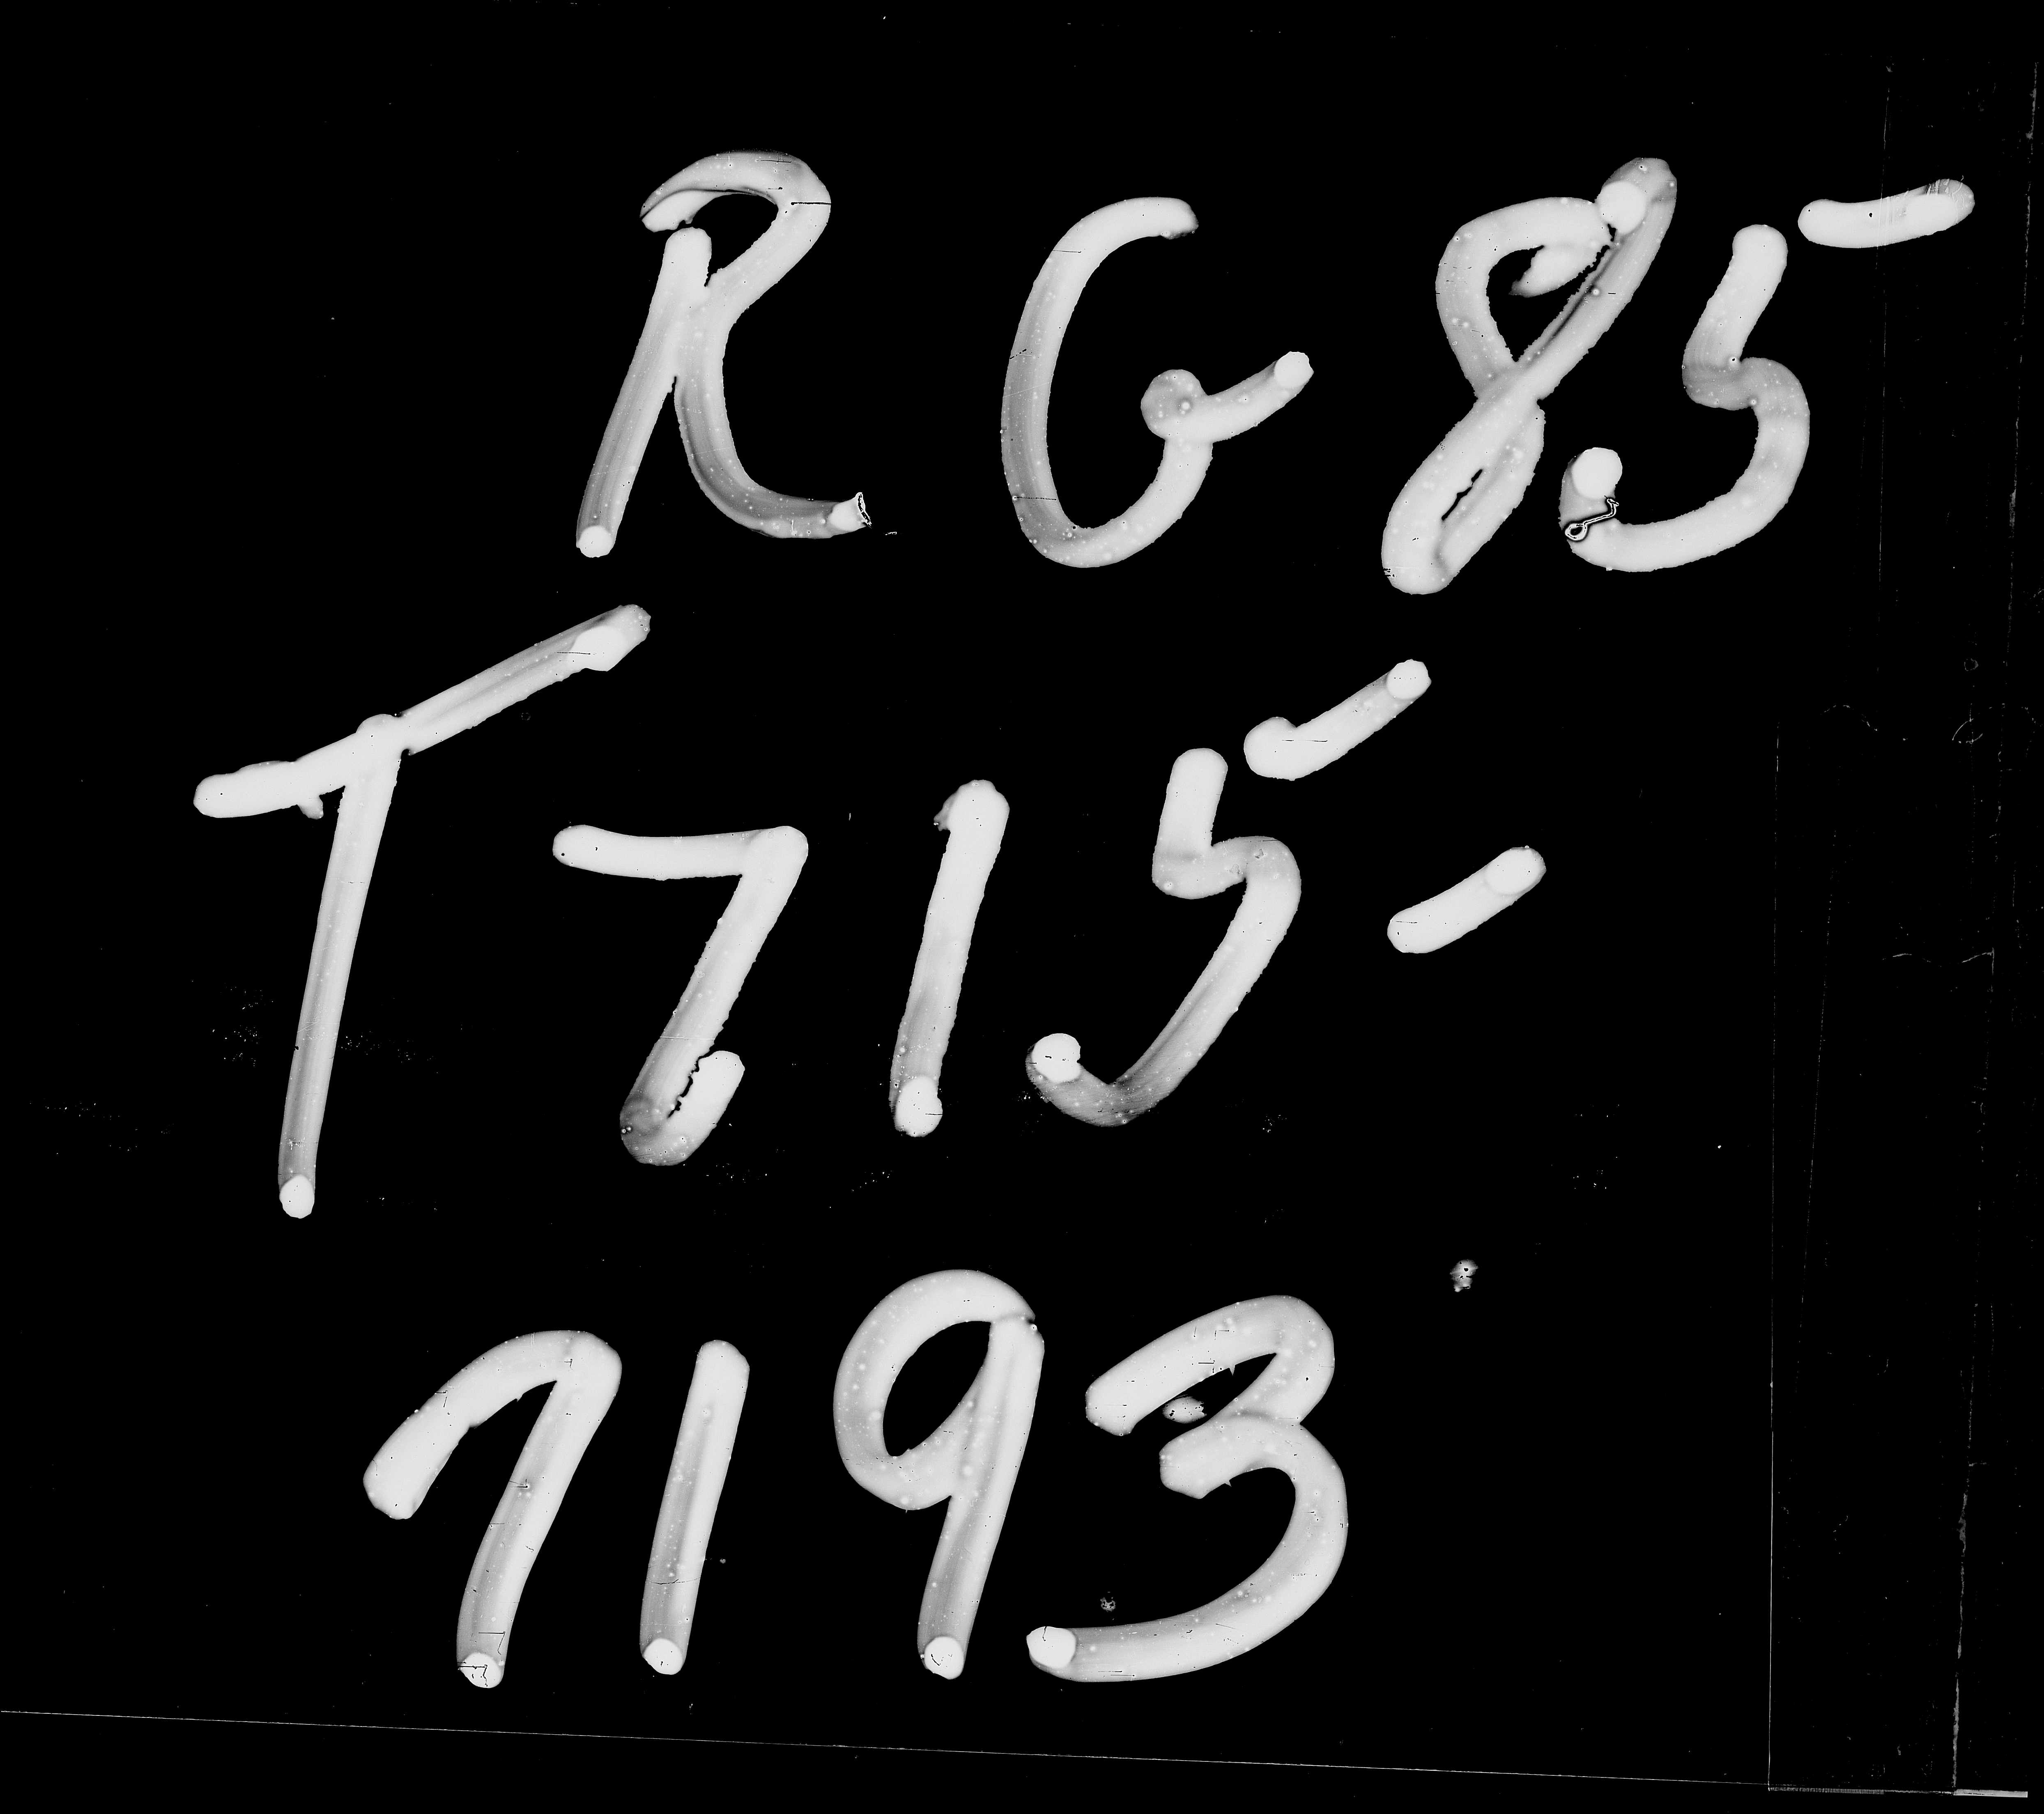 RG85
T715-
7193